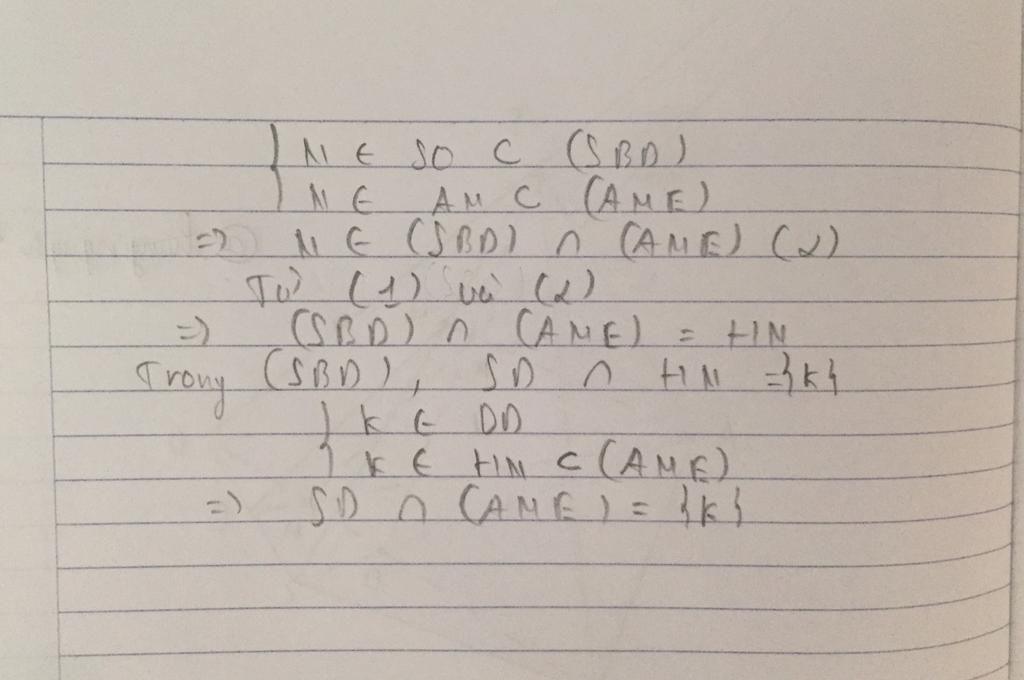 { N ∈ SO ⊂ (SBD)
{ N ∈ AM ⊂ (AME)
=> N ∈ (SBD) ∩ (AME) (2)
Từ (1) và (2)
=> (SBD) ∩ (AME) = HN
Trong (SBD), SD ∩ HN = {K}
{ K ∈ SD
{ K ∈ HN ⊂ (AME)
=> SD ∩ (AME) = {K}